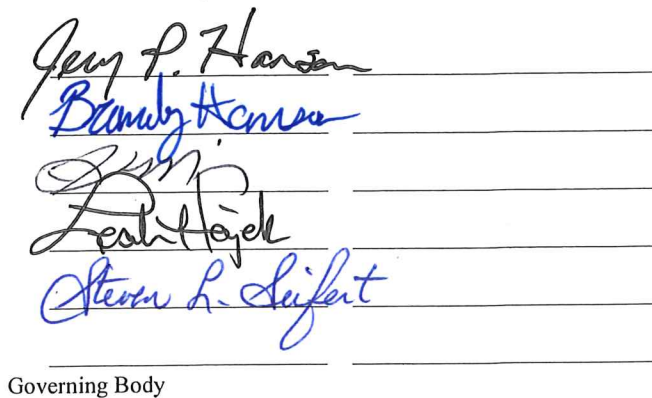 Jerry P. Hanson
Brandy Hanson
Leah Hajek
Steven L. Seifert
Governing Body